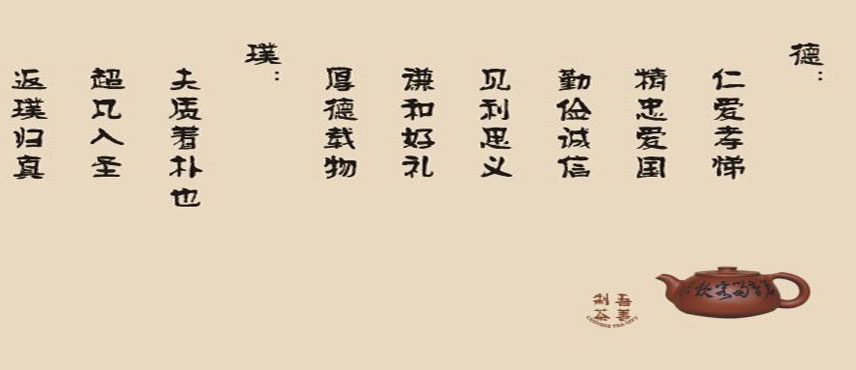 德：
仁爱孝悌
精忠爱国
勤俭诚信
见利思义
谦和好礼
厚德载物
璞：
大质着朴也
超凡入圣
返璞归真